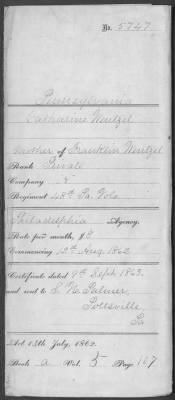 No. 5747
Pennsylvania
Catharine Wentzel
Mother of Franklin Wentzel
Rank Private
Company
Regiment 48th Pa. Vols
Philadelphia Agency.
Rate per month, $8
Commencing 12th Aug. 1862
Certificate dated 9th Sept. 1863.
and sent to S. N. Palmer,
Pottsville,
Pa
Act 14th July, 1862.
Book A Vol. 5 Page 167